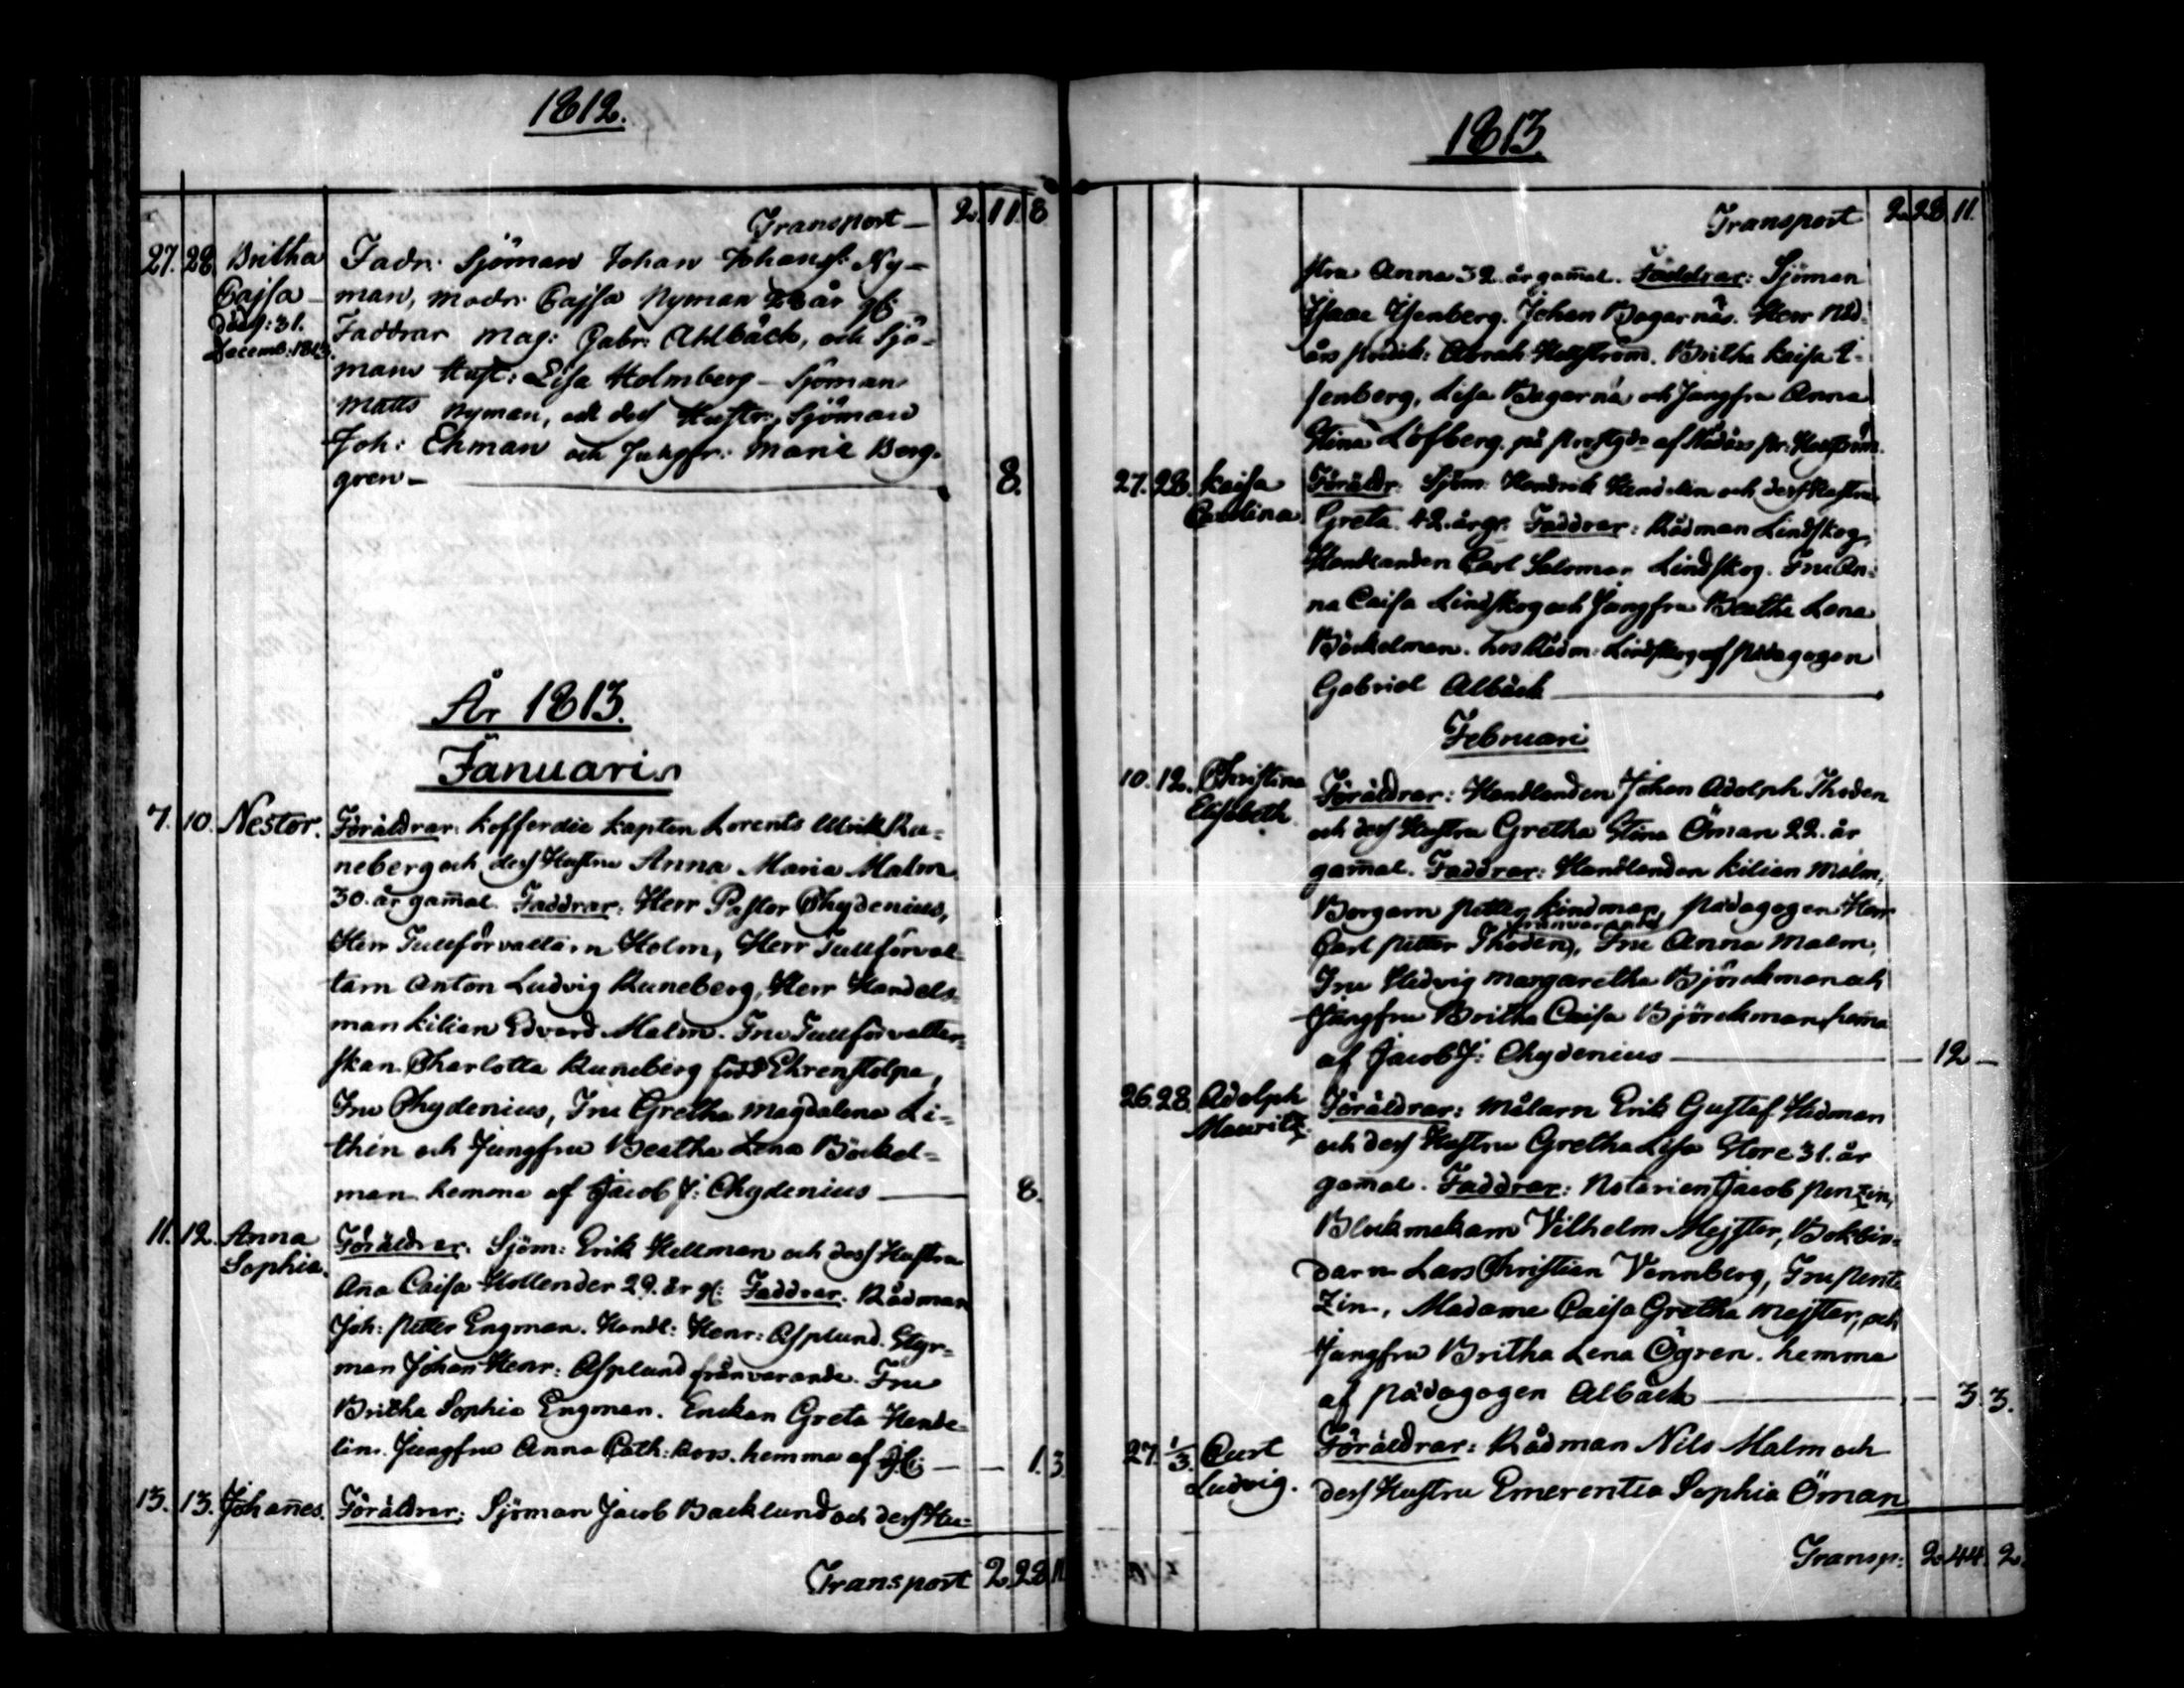 1812.
Transport — 2. 11. 8
27. 28. Britha Fadr: Sjöman Johan Johansf: Ny-
Cajsa — man, Modr: Cajsa Nyman 28 år gl:
död d: 31. Faddrar Mag: Gabr: Ahlbäck, och Sjö-
Decemb: 1813. mans Hust: Lisa Holmberg — Sjöman
Matts Nyman, och dess Hustr:, Sjöman
Joh: Ehman och Jungfr: Maria Berg-
gren — 8.
År 1813.
Januari
7. 10. Nestor. Föräldrar: Kofferdie Kapten Lorents Ulrik Ru-
neberg och dess Hustru Anna Maria Malm
30. år gam̄al. Faddrar: Herr Pastor Chydenius,
Herr Tullförvaltarn Holm, Herr Tullförval-
tarn Anton Ludvig Runeberg, Herr Handels-
man Kilian Edvard Malm. Fru Tullförvaltar-
skan Charlotta Runeberg född Ehrenstolpe,
Fru Chydenius, Fru Gretha Magdalena Li-
thén och Jungfru Beatha Lena Böckel-
man. hemma af Jacob J: Chydenius — 8.
11. 12. Anna Föräldrar. Sjöm: Erik Hellman och dess Hustru
Sophia. An̄a Caisa Hollender 29. år gl: Faddrar. Rådman
Joh: Petter Engman. Handl: Henr: Asplund. Styr-
man Johan Henr: Asplund frånvarande. Fru
Britha Sophia Engman. Enckan Greta Hende-
lin. Jungfru Anna Cath: Ross. hemma af — — 1. 3
13. 13. Johan̄es. Föräldrar: Sjöman Jacob Backlund och dess Hu-
Transport 2. 28. 11
1813.
Transport 2. 28. 11.
stru Anna 32. år gam̄al. Faddrar: Sjöman
Isaac Isenberg. Johan Bagarnäs. Herr Råd-
Abrah: Hellström. Britha Kaisa I-
senberg, Lisa Bagarnä och Jungfru Anna
Stina Löfberg. på af
27. 28. Kaisa Föräldr: Sjöm: Hendrik Hendelin och dess Hustru
Carolina. Greta. 42. år gl. Faddrar: Rådman Lindskog,
Handlanden Carl Salomon Lindskog. Fru An-
na Caisa Lindskog och Jungfru Beatha Lena
Böckelman. hos Rådm: Lindskog af Pädagogen
Gabriel Albäck —
Februari
10. 12. Christina Föräldrar: Handlanden Johan Adolph Thodén
Elisabeth. och dess Hustru Gretha Stina Öman 22. år
gam̄al. Faddrar: Handlanden Kilian Malm,
Borgarn Petter Lindman, Pädagogen Herr
frånvarande
Carl Petter Thodén), Fru Anna Malm,
Fru Hedvig Margaretha Björckman och
Jungfru Britha Caisa Björckman hem̄a
af Jacob J: Chydenius — — 12 —
26. 28. Adolph Föräldrar: Målarn Erik Gustaf Hedman
Mauritz. och dess Hustru Gretha Lisa Store 31. år
gam̄al. Faddrar: Notarien Jacob Penzin,
Bleckmakarn Vilhelm Mejster, Bokbin-
darn Lars Christian Vennberg, Fru Pent-
zin, Madame Caisa Gretha Mejster, och
Jungfru Britha Lena Ögren. hemma
af Pädagogen Albäck — — 3. 3.
27. 1/3. Curt Föräldrar: Rådman Nils Malm och
Ludvig. dess Hustru Emerentia Sophia Öman
Transp: 2. 44. 2.